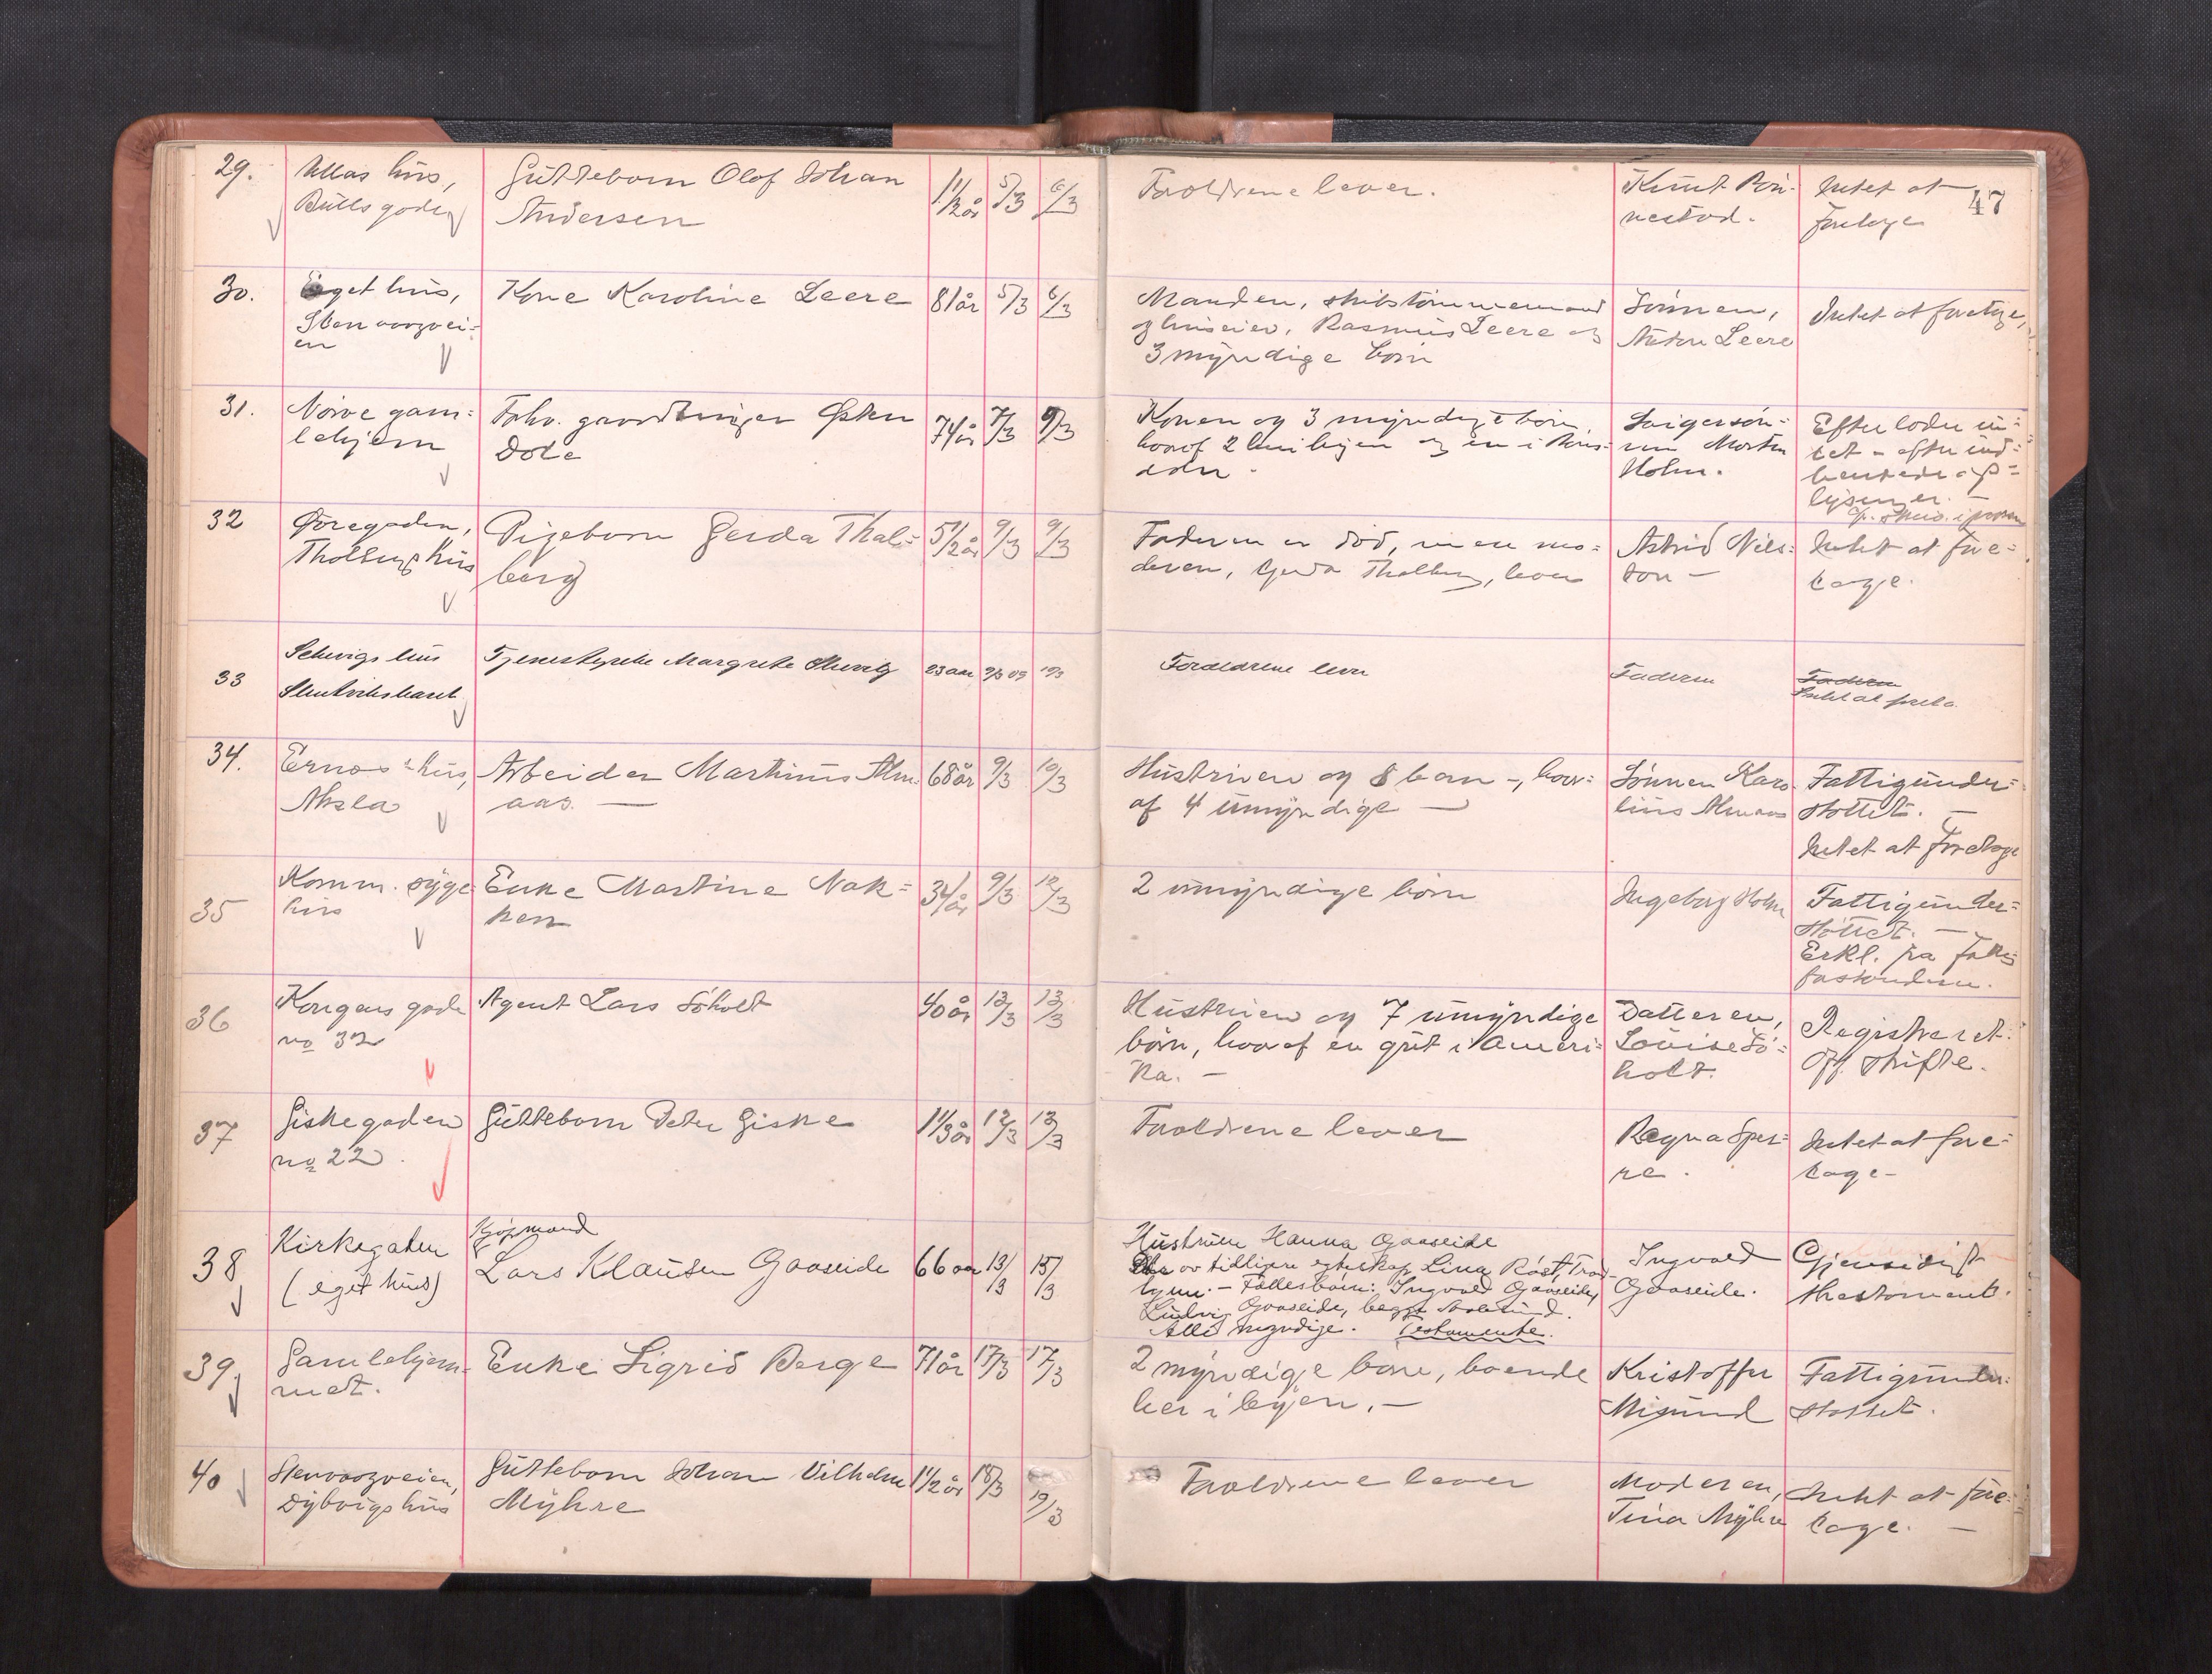 47
29.
Ullas hus,
Bullsgaden
Gutteborn Olof Johan
Andersen
1 1/2 år
5/3
6/3
Forældrene lever.
Knut Røn-
nestad.
Intet at
foretage
30.
Eget hus,
Stenvaagvei-
en
Kone Karoline Leere
81 år
5/3
6/3
Manden, skibstømmermand
og huseier, Rasmus Leere og
3 myndige børn
Sønnen,
Anton Leere
Intet at foretage
31.
Nørve gam-
lehjem
Forhv. gaardbruger Østen
Dole
74 år
7/3
9/3
Konen og 3 myndige børn,
hvoraf 2 her i byen og en i
Svigersøn-
nen Morten
Holm.
Efterlader in-
tet - efter ind-
hentede op-
lysninger. -
32
Øvregaden,
Thalbergs hus
Pigeborn Gerda Thal-
berg
5 1/2 år
9/3
9/3
Faderen er død, men mo-
deren, Gerda Thalberg, lever
Astrid Niel-
son -
Intet at fore-
tage.
33
hus
Tjenestepike Margrete
23 aar
9/3 09
10/3
Forældrene lever
Faderen
Faderen
Intet at foreta.
34.
Ernas hus,
Aksla
Arbeider Martinus Alm-
aas. -
68 år
9/3
10/3
Hustruen og 8 barn -, hvor-
af 4 umyndige -
Sønnen Karo-
lius Almaas
Fattigunder-
støttet. -
Intet at foretage
35
Komm. syge-
hus
Enke Martine Nak-
ken
34 år
9/3
12/3
2 umyndige børn
Ingeborg Holm
Fattigunder-
støttet. -
Erkl. fra fattig-
forstanderen.
36
Kongens gade
no 32
Agent Lars Søholt
40 år
12/3
13/3
Hustruen og 7 umyndige
børn, hvoraf en gift i Ameri-
ka. -
Datteren,
Louise Sø-
holt.
Registreret.
Off. skifte.
37
Giskegaden
no 22.
Gutteborn Peter Giske
1 1/3 år
12/3
13/3
Forældrene lever
Ragna Sper-
re.
Intet at fore-
tage -
38
Kirkegaten
(eget hus)
Kjøpmand
Lars Klausen Gaaseide
66 aar
13/3
15/3
Hustruen Hanna Gaaseide
av tidligere egteskap Lina
- Fællesbørn: Ingvald Gaaseide,
Ludvig Gaaseide, begge Aalesund.
Alle myndige. Testamente.
Ingvald
Gaaseide.
Gjensidigt
thestament.
39.
Gamlehjem-
met.
Enke Sigrid Berge
71 år
17/3
17/3
2 myndige børn, boende
her i byen. -
Kristoffer
Misund
Fattigunder-
støttet.
40
Stenvaagveien,
Dybvigs hus
Gutteborn Johan Vilhelm
Myhre
1 1/2 år
18/3
19/3
Forældrene lever
Moderen,
Tina Myhre
Intet at fore-
tage. -